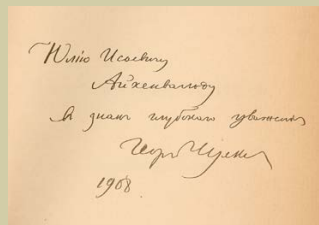 Юлію Исаевичу
Айхенвальду
въ знакъ глубокаго уваженія
Георг Чулков
1908